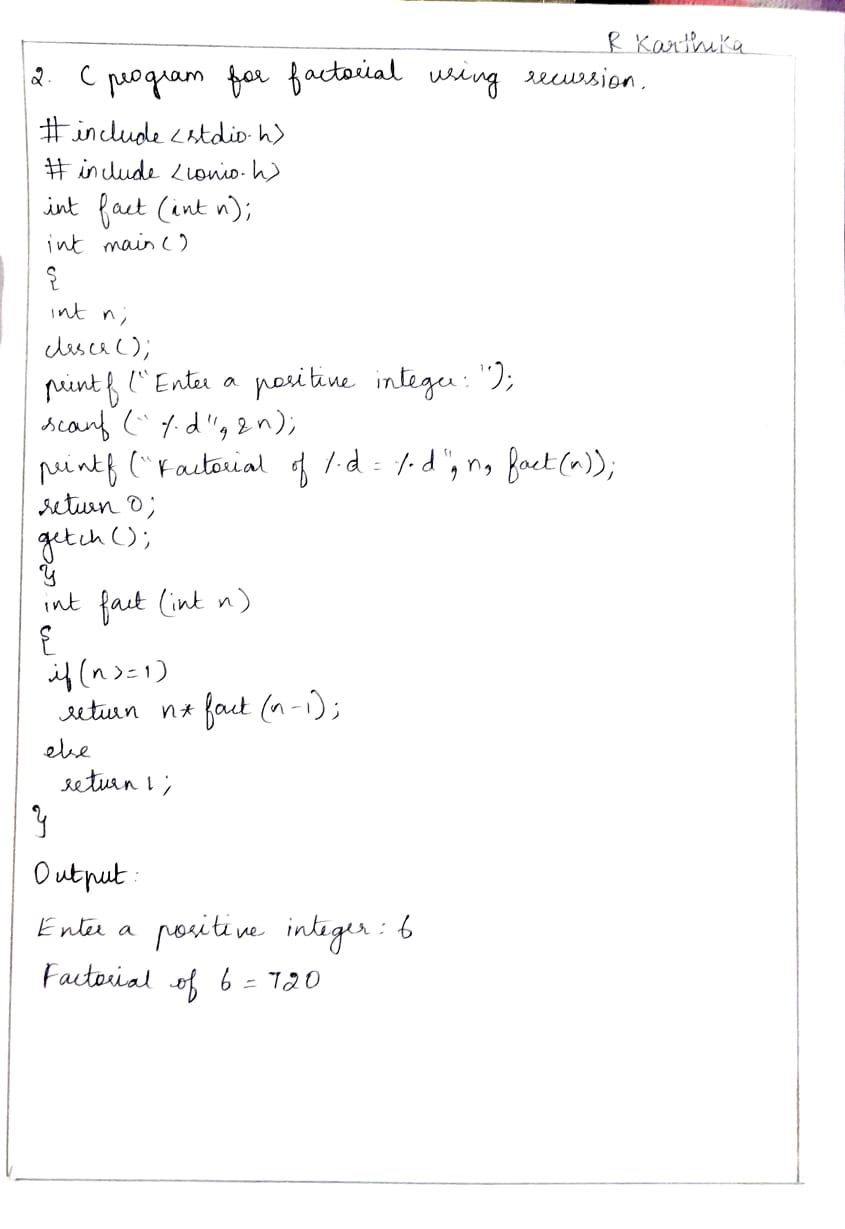 R Karthika
2. C program for factorial using recursion.
#include <stdio.h>
#include <conio.h>
int fact (int n);
int main()
{
int n;
clrscr();
printf ("Enter a positive integer: ");
scanf ("%d", &n);
printf ("Factorial of %d = %d", n, fact(n));
return 0;
getch();
}
int fact (int n)
{
if (n>=1)
return n* fact (n-1);
else
return 1;
}
Output:
Enter a positive integer: 6
Factorial of 6 = 720